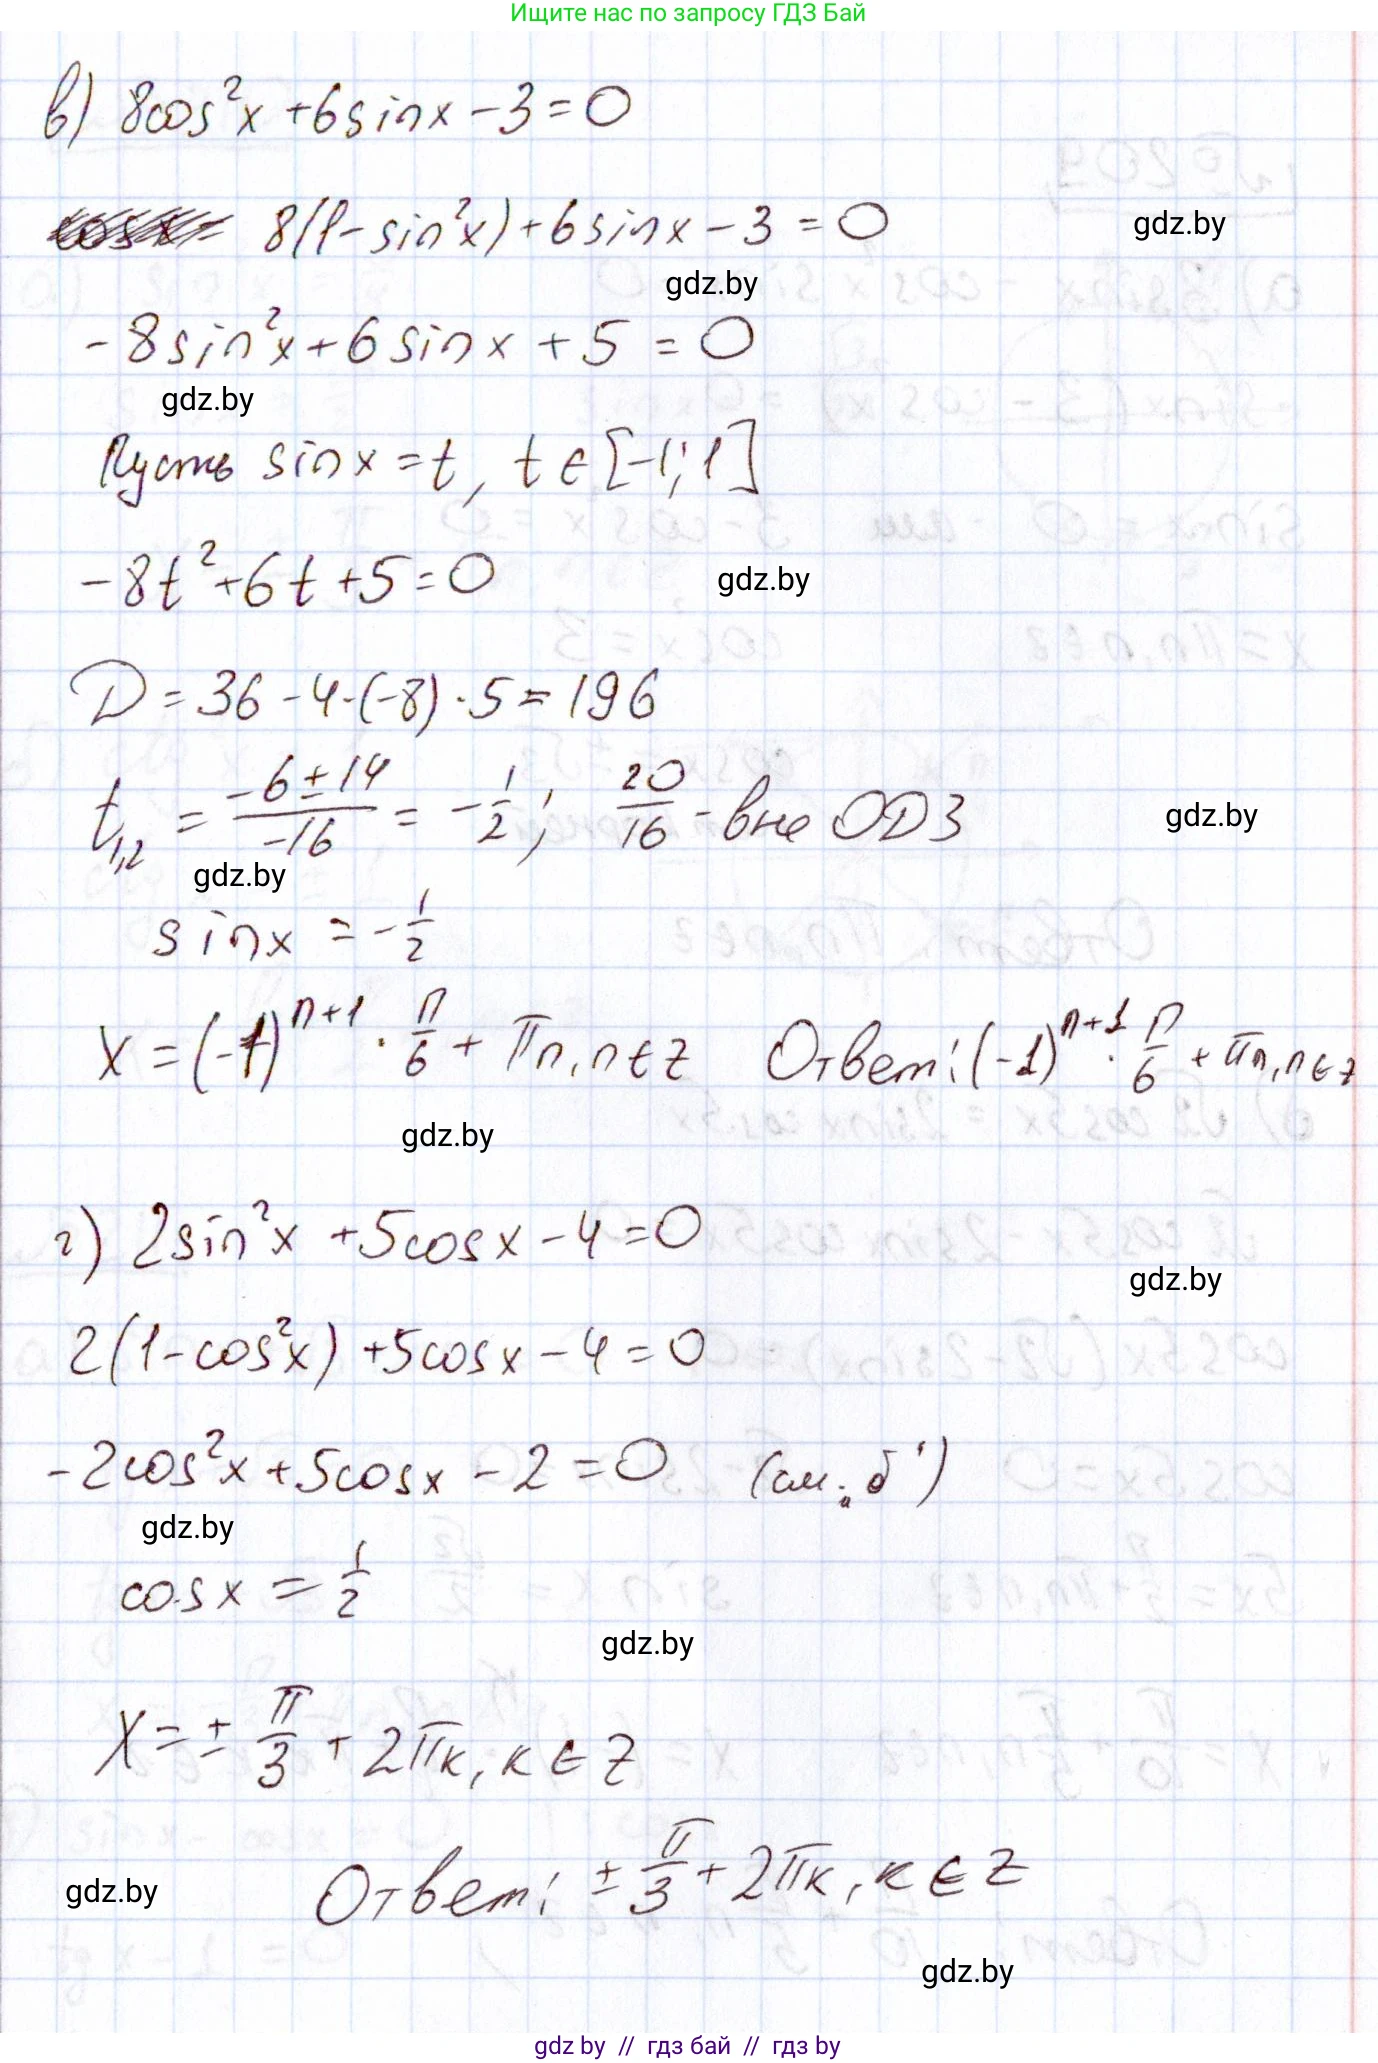 Ищите нас по запросу ГДЗ Бай
в) 8cos²x + 6sinx - 3 = 0
8(1 - sin²x) + 6sinx - 3 = 0
gdz.by
gdz.by
-8sin²x + 6sinx + 5 = 0
gdz.by
Пусть sinx = t, t ∈ [-1; 1]
-8t² + 6t + 5 = 0
gdz.by
D = 36 - 4·(-8)·5 = 196
t₁,₂ = (-6 ± 14)/(-16) = -1/2; 20/16 - вне ОДЗ
gdz.by
gdz.by
sinx = -1/2
x = (-1)ⁿ⁺¹ · π/6 + πn, n ∈ Z Ответ: (-1)ⁿ⁺¹ · π/6 + πn, n ∈ Z
gdz.by
г) 2sin²x + 5cosx - 4 = 0
gdz.by
2(1 - cos²x) + 5cosx - 4 = 0
-2cos²x + 5cosx - 2 = 0 (см. б')
gdz.by
cosx = 1/2
gdz.by
x = ± π/3 + 2πк, к ∈ Z
gdz.by
Ответ: ± π/3 + 2πк, к ∈ Z
gdz.by
gdz by // гдз бай // gdz by